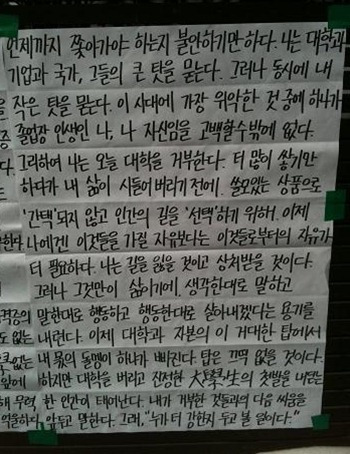 언제까지 쫓아가야 하는지 불안하기만 하다. 나는 대학과
기업과 국가, 그들의 큰 탓을 묻는다. 그러나 동시에 내
작은 탓을 묻는다. 이 시대에 가장 위악한 것 중에 하나가
졸업장 인생인 나, 나 자신임을 고백할 수밖에 없다.
그리하여 나는 오늘 대학을 거부한다. 더 많이 쌓기만
하다가 내 삶이 시들어 버리기 전에. 쓸모있는 상품으로
'간택'되지 않고 인간의 길을 '선택'하기 위해. 이제
나에겐 이것들을 가질 자유보다는 이것들로부터의 자유가
더 필요하다. 나는 길을 잃을 것이고 상처받을 것이다.
그러나 그것만이 삶이기에. 생각한대로 말하고
말한대로 행동하고 행동한대로 살아내겠다는 용기를
내련다. 이제 대학과 자본의 이 거대한 탑에서
내 몫의 돌멩이 하나가 빠진다. 탑은 끄떡 없을 것이다.
하지만 대학을 버리고 진정한 大學生의 첫발을 내딛는
한 인간이 태어난다. 내가 거부한 것들과의 다음 싸움을
앞두고 말한다. 그래, "누가 더 강한지 두고 볼 일이다."